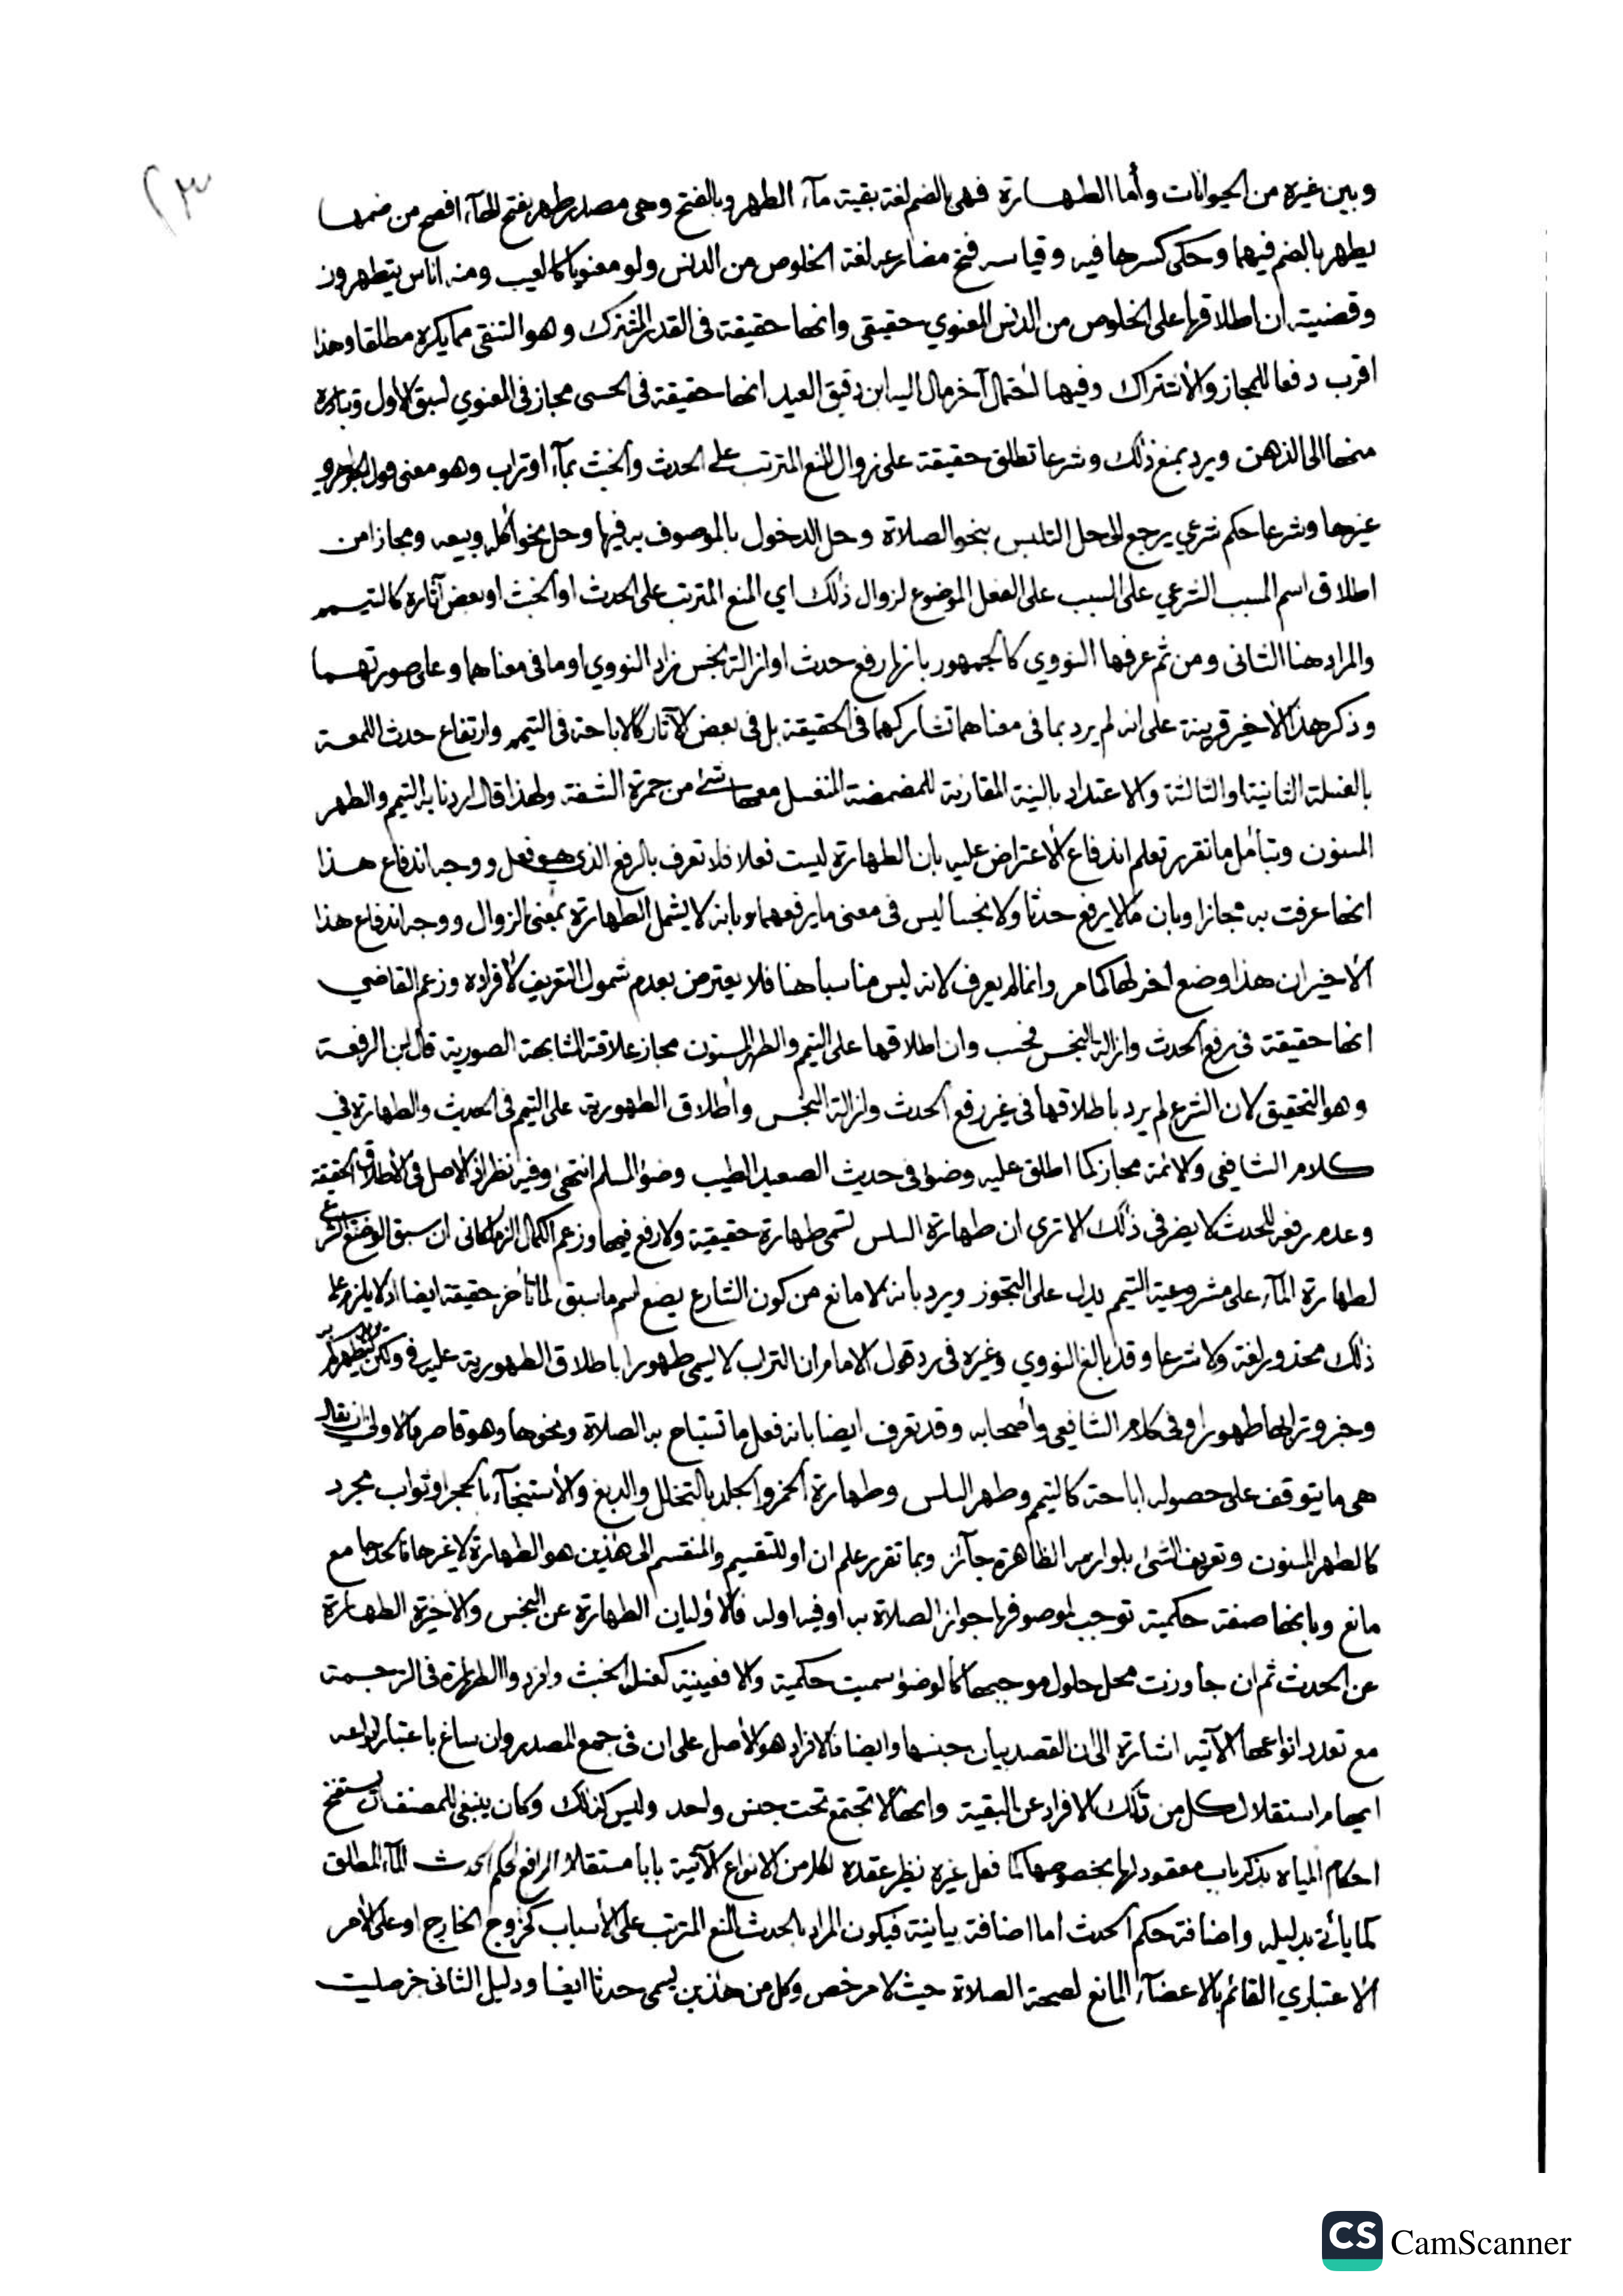 ٢٣
وبين غيره من الحيوانات وأما الطهارة فهي بالضم لغة بقية مآء الطهر وبالفتح وهي مصدر طهر بفتح الهآء افصح من ضمها
يطهر بالضم فيهما وحكى كسرها فيه وقياسه فتح مضارعه لغة الخلوص من الدنس ولو معنويا كالعيب ومنه اناس يتطهرون
وقضيته ان اطلاقها على الخلوص من الدنس المعنوي حقيقي وانها حقيقة في القدر المشترك وهو التنقي مما يكره مطلقا وهذا
اقرب دفعا للمجاز والاشتراك وفيها احتمال آخر مال اليه ابن دقيق العيد انها حقيقة في الحسي مجاز في المعنوي لسبق الاول وتبادره
منها الى الذهن ويرد بمنع ذلك وشرعا تطلق حقيقة على زوال المنع المترتب على الحدث والخبث بمآء او تراب وهو معنى قول
غيرها وشرعا حكم شرعي يرجع الى حل التلبس بنحو الصلاة وحل الدخول بالموصوف به فيها وحل نحو أكله وبيعه ومجازا من
اطلاق اسم المسبب الشرعي على السبب على الفعل الموضوع لزوال ذلك اي المنع المترتب على الحدث او الخبث او بعض آثاره كالتيمم
والمراد هنا الثاني ومن ثم عرفها النووي كالجمهور بانها رفع حدث او ازالة نجس زاد النووي او ما في معناهما وعلى صورتهما
وذكر هذا الاخير قرينة على انه لم يرد بما في معناهما تشاركهما في الحقيقة بل في بعض الآثار كالاباحة في التيمم وارتفاع حدث اللمعة
بالغسلة الثانية او الثالثة والاعتداد بالنية المقارنة للمضمضة المنغسل معها شئ من حمرة الشفة ولهذا قال اردنا به التيمم والطهر
المسنون وبتأمل ما تقرر تعلم اندفاع الاعتراض عليه بان الطهارة ليست فعلا فلا تعرف بالرفع الذي هو فعل ووجه اندفاع هذا
انها عرفت به مجازا وبان ما لا يرفع حدثا ولا نجسا ليس في معنى ما يرفعهما وبانه لا يشمل الطهارة بمعنى الزوال ووجه اندفاع هذا
الاخير ان هذا وضع آخر لها كما مر وانما لم يعرف لانه ليس مناسبا هنا فلا يعترض بعدم شمول التعريف لافراده وزعم القاضي
انها حقيقة في رفع الحدث وازالة النجس فحسب وان اطلاقها على التيمم والطهر المسنون مجاز علاقته المشابهة الصورية قال ابن الرفعة
وهو التحقيق لان الشرع لم يرد باطلاقها في غير رفع الحدث وازالة النجس واطلاق الطهورية على التيمم في الحديث والطهارة في
كلام الشافعي والائمة مجاز كما اطلق عليه وضوا في حديث الصعيد الطيب وضؤ المسلم انتهى وفيه نظر اذ الاصل في الاطلاق الحقيقة
وعدم رفعه للحدث لا يضر في ذلك الا ترى ان طهارة السلس تسمى طهارة حقيقية ولا رفع فيها وزعم الكمال الزملكاني ان سبق الوضع الشرعي
لطهارة المآء على مشروعية التيمم يدل على التجوز ويرد بانه لا مانع من كون الشارع يضع اسم ما سبق لما تأخر حقيقة ايضا اذ لا يلزم على
ذلك محذور لغة ولا شرعا وقد بالغ النووي وغيره في رد قول الامام ان التراب لا يسمى طهورا باطلاق الطهورية عليه في ولكن ليطهركم
وخبر وترابها طهورا وفي كلام الشافعي وأصحابه وقد تعرف ايضا بانه فعل ما تستباح به الصلاة ونحوها وهو قاصر فالاولى ان يقال
هي ما يتوقف على حصوله اباحة كالتيمم وطهر السلس وطهارة الخمر والجلد بالتخلل والدبغ والاستنجآء بالحجر او ثواب مجرد
كالطهر المسنون وتعريف الشئ بلوازمه الظاهرة جآئز وبما تقرر علم ان او للتقسيم والمنقسم الى هذين هو الطهارة لا غيرها مع
مانع وبانها صفة حكمية توجب لموصوفها جواز الصلاة به او فيه او له فالأوليان الطهارة عن النجس والاخيرة الطهارة
عن الحدث ثم ان جاوزت محل حلول موجبها كالوضؤ سميت حكمية والا فعينية كغسل الخبث وافردوا الطهارة في الترجمة
مع تعدد انواعها الآتية اشارة الى ان القصد بيان جنسها وايضا فالافراد هو الاصل على ان في جمع المصدر وان ساغ باعتبار انواعه
ايهام استقلال كل من تلك الافراد عن البقية وانها لا تجتمع تحت جنس واحد وليس كذلك وكان ينبغي للمصنف ان يستفتح
احكام المياه بذكر باب معقود لها بخصوصها كما فعل غيره نظير عقده لكل من الانواع الآتية بابا مستقلا الرافع لحكم الحدث المآء المطلق
كما يأتي بدليله واضافة حكم الحدث اما اضافة بيانية فيكون المراد بالحدث المنع المترتب على الاسباب كخروج الخارج او على الامر
الاعتباري القائم بالاعضآء المانع لصحة الصلاة حيث لا مرخص وكل من هذين يسمى حدثا ايضا ودليل الثاني خبر صليت
CS CamScanner